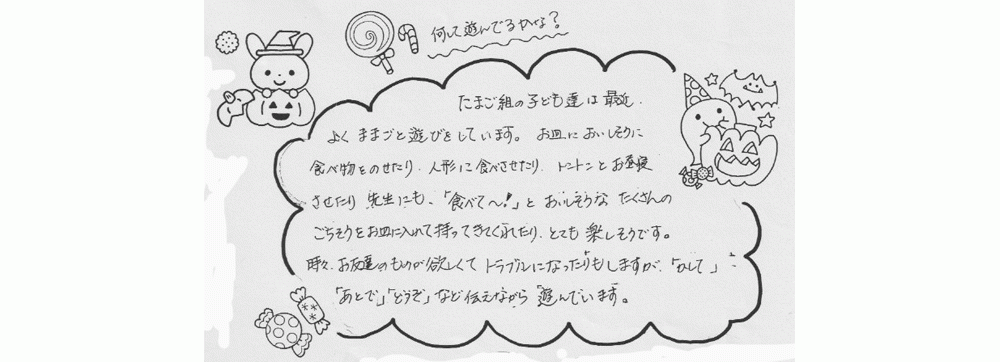 何して遊んでるかな？
たまご組の子ども達は最近、
よくままごと遊びをしています。お皿においしそうに
食べ物をのせたり、人形に食べさせたり、トントンとお昼寝
させたり先生にも、「食べて～！」とおいしそうなたくさんの
ごちそうをお皿に入れて持ってきてくれたり、とても楽しそうです。
時々、お友達のものが欲しくてトラブルになったりもしますが、「かして」
「あとで」「どうぞ」など伝えながら遊んでいます。